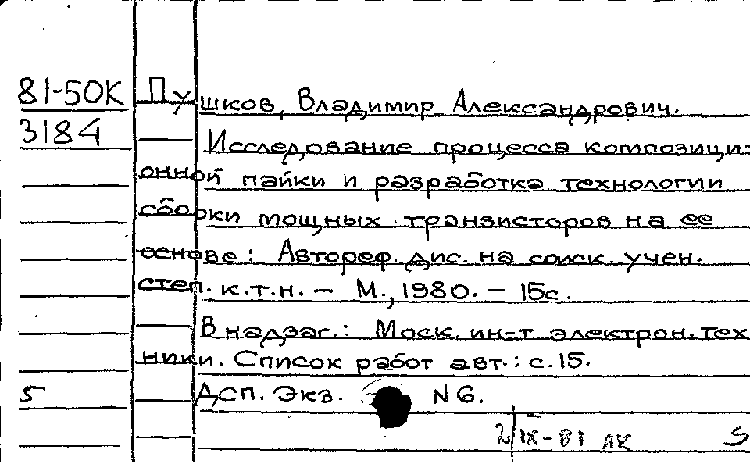 81-50К Пушков, Владимир Александрович.
3184 Исследование процесса композици-
онной пайки и разработка технологии
сборки мощных транзисторов на ее
основе: Автореф. дис. на соиск. учен.
степ. к.т.н. – М., 1980. – 15с.
В надзаг.: Моск. ин-т электрон. тех
ники. Список работ авт.: с.15.
5 ДСП. Экз. N 6.
2/IX-81 ЛК S